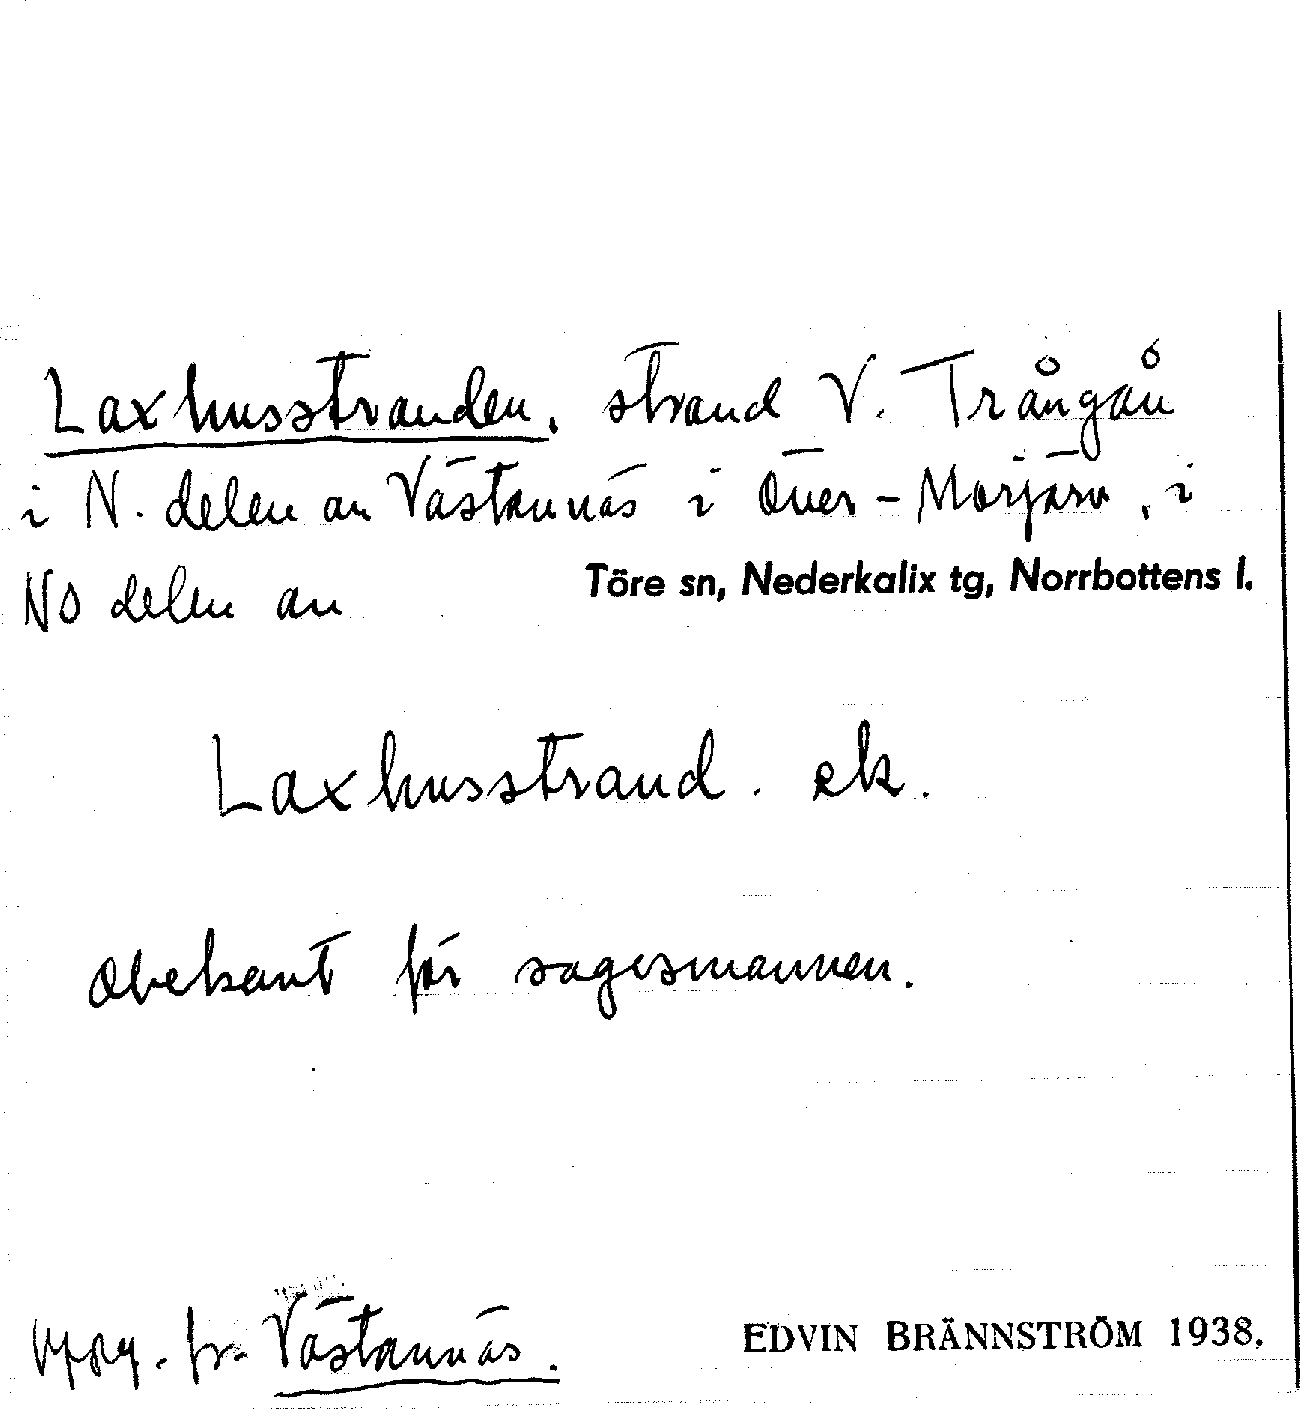 Laxhusstranden. strand V. Trångån
i N. delen av Västannäs i Över-Morjärv, i
NO delen av Töre sn, Nederkalix tg, Norrbottens l.
Laxhusstrand. ek.
Obekant för sagesmannen.
Uppg. fr. Västannäs. EDVIN BRÄNNSTRÖM 1938.